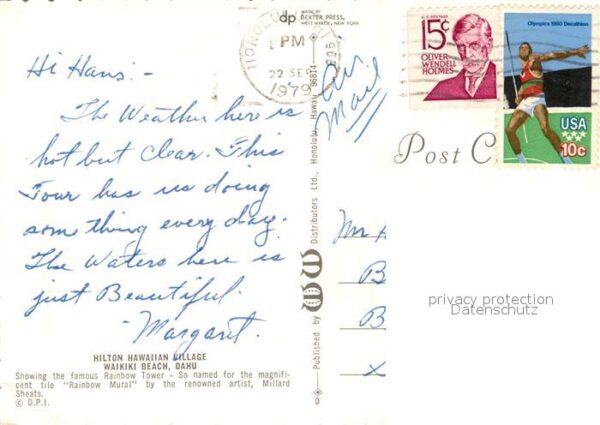 dp
MADE BY
DEXTER PRESS,
WEST NYACK, NEW YORK
HONOLULU
PM
22 SEP
1979
Hi Hans: -
The Weather here is
hot but Clear. This
Tour has us doing
something every day.
The Waters here is
just Beautiful.
- Margaret.
HILTON HAWAIIAN VILLAGE
WAIKIKI BEACH, OAHU
Showing the famous Rainbow Tower - So named for the magnifi-
cent tile "Rainbow Mural" by the renowned artist, Millard
Sheats.
© D.P.I.
Published by Distributors Ltd., Honolulu, Hawaii 96814
Air
Mail
U.S. POSTAGE
15¢
OLIVER
WENDELL
HOLMES
Olympics 1980 Decathlon
USA
10c
Post C
Mr H
B
B
privacy protection
Datenschutz